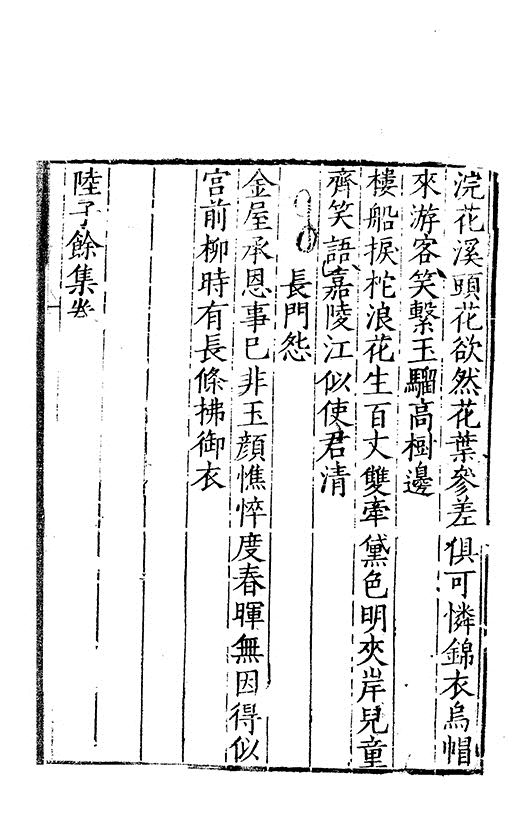 浣花溪頭花欲然花葉參差俱可憐錦衣烏帽
來游客笑繫玉騮高樹邊
樓船捩柁浪花生百丈雙牽黛色明夾岸兒童
齊笑語嘉陵江似使君清
長門怨
金屋承恩事已非玉顏憔悴度春暉無因得似
宮前柳時有長條拂御衣
陸子餘集卷